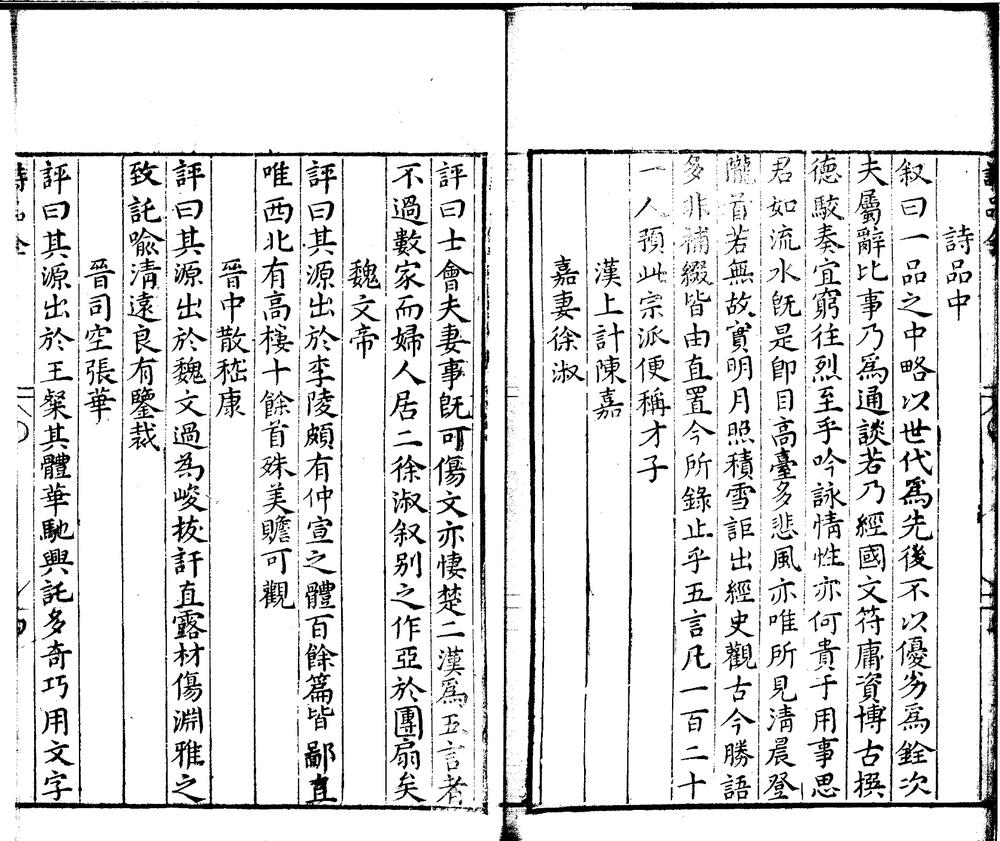 詩品中
叙曰一品之中略以世代爲先後不以優劣爲銓次
夫屬辭比事乃爲通談若乃經國文符庸資博古撰
德駮奏宜窮往烈至乎吟詠情性亦何貴于用事思
君如流水旣是卽目高臺多悲風亦唯所見淸晨登
隴首若無故實明月照積雪詎出經史觀古今勝語
多非補綴皆由直置今所錄止乎五言凡一百二十
一人預此宗派便稱才子
漢上計陳嘉
嘉妻徐淑
評曰士會夫妻事旣可傷文亦悽楚二漢爲五言者
不過數家而婦人居二徐淑叙别之作亞於團扇矣
魏文帝
評曰其源出於李陵頗有仲宣之體百餘篇皆鄙直
唯西北有高樓十餘首殊美贍可觀
晉中散嵇康
評曰其源出於魏文過為峻拔訐直露材傷淵雅之
致託喩淸遠良有鑒裁
晉司空張華
評曰其源出於王粲其體華馳興託多奇巧用文字